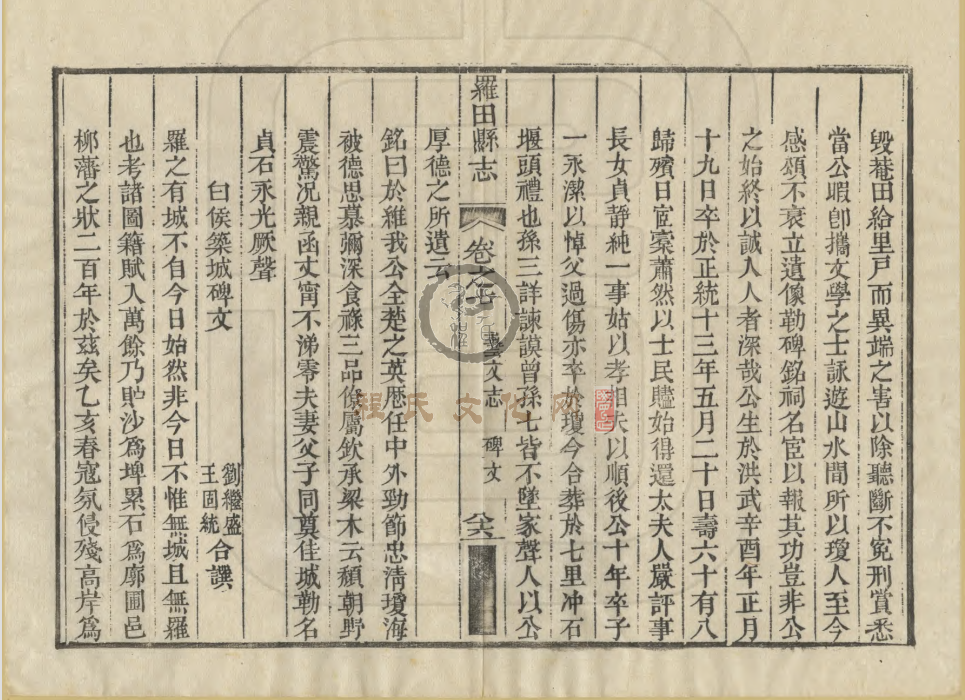 毀菴田給里戸而異端之害以除聽斷不寃刑賞悉
當公暇卽攜文學之士詠遊山水間所以瓊人至今
感頌不衰立遺像勒碑銘祠名宦以報其功豈非公
之始終以誠人人者深哉公生於洪武辛酉年正月
十九日卒於正統十三年五月二十日壽六十有八
歸殯日宦槖蕭然以士民贐始得還太夫人嚴評事
長女貞靜純一事姑以孝相夫以順後公十年卒子
一永潔以悼父過傷亦卒於瓊今合葬於七里冲石
堰頭禮也孫三詳諫謨曾孫七皆不墜家聲人以公
羅田縣志
卷之
藝文志
碑文
八六
厚德之所遺云
銘曰於維我公全楚之英歴任中外勁節忠淸瓊海
被德思慕彌深食祿三品僚屬欽承梁木云頹朝野
震驚况親函丈寗不涕零夫妻父子同奠佳城勒名
貞石永光厥聲
曰侯築城碑文
劉繼盛
王固統
合譔
羅之有城不自今日始然非今日不惟無城且無羅
也考諸圖籍賦入萬餘乃貯沙爲埤累石爲廓圃邑
柳藩之狀二百年於茲矣乙亥春寇氛侵殘高岸爲
程氏文化网